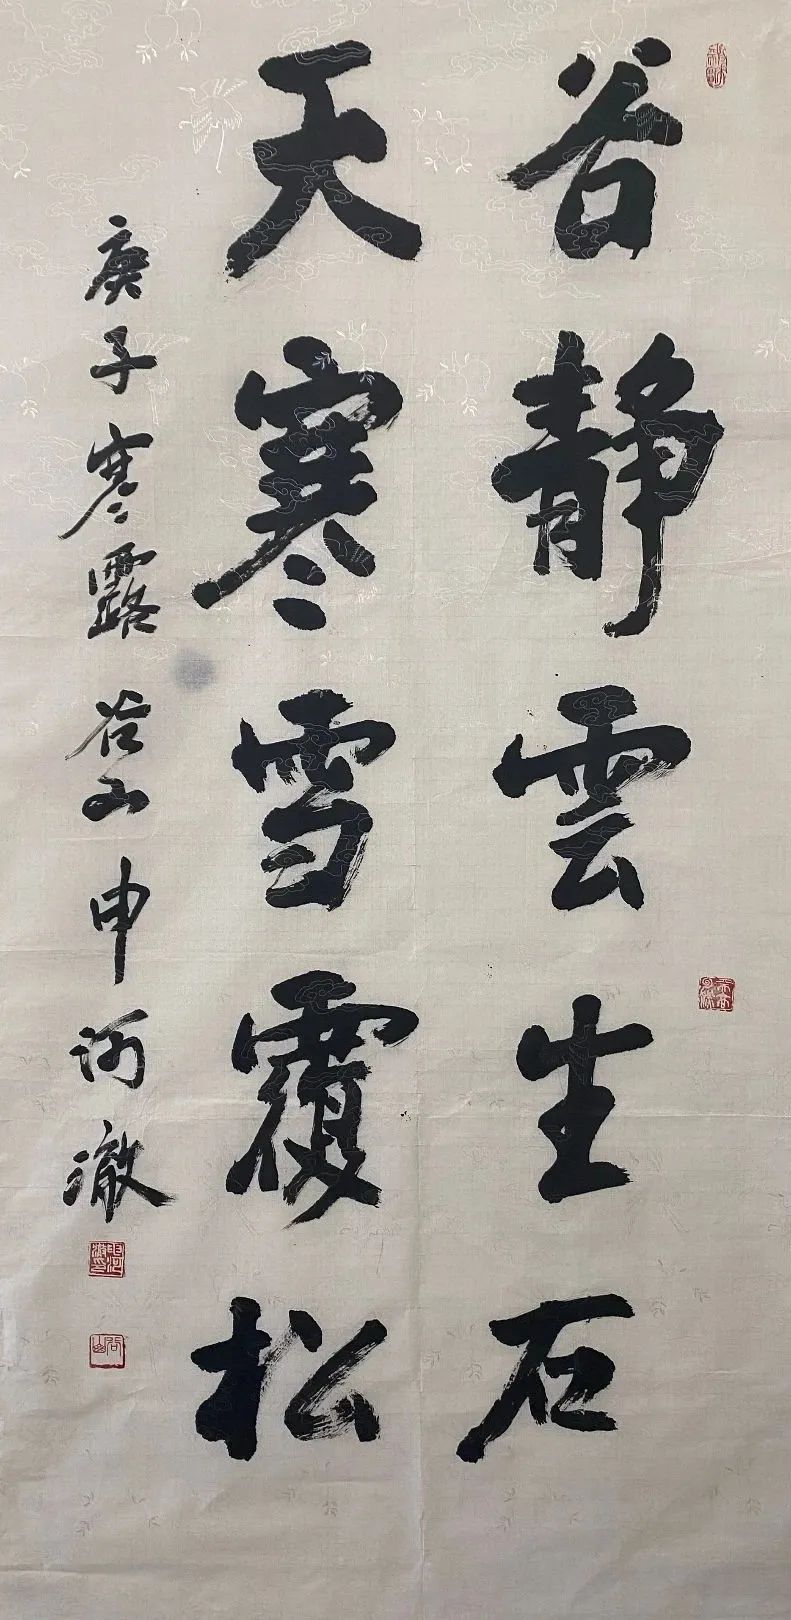 谷靜雲生石
天寒雪覆松
庚子寒露谷山申河澈
谷山